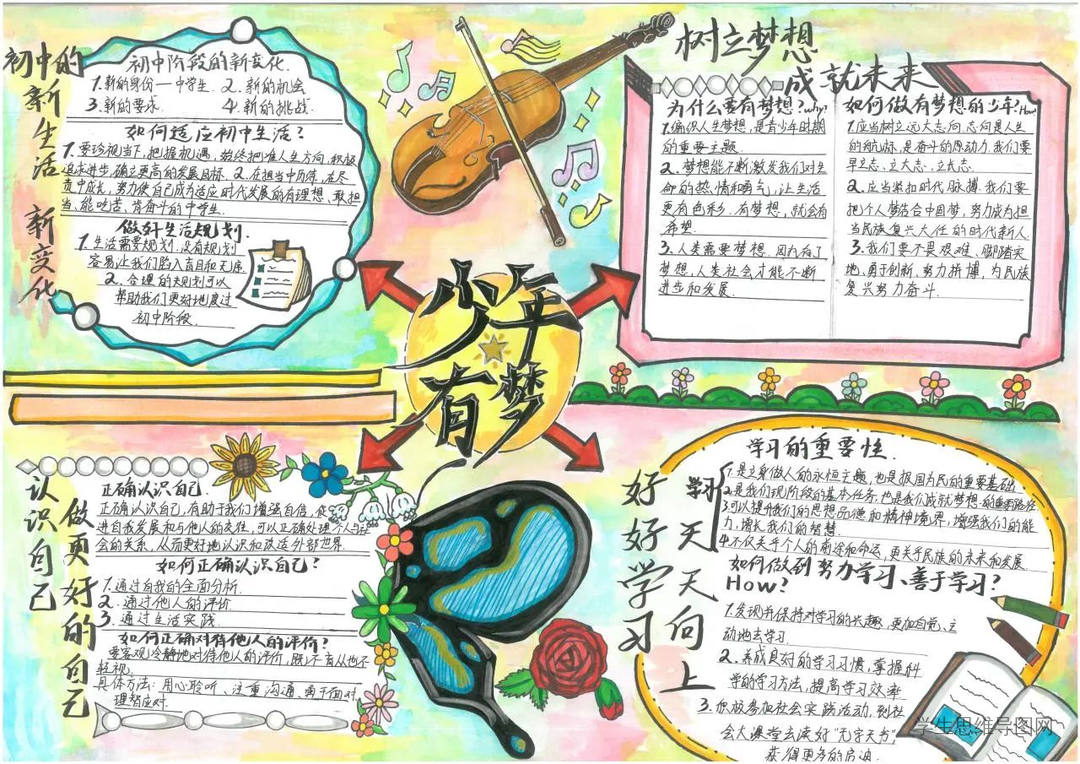 初中的新生活 新变化
初中阶段的新变化.
1.新的身份一中学生. 2.新的机会
3.新的要求. 4.新的挑战.
如何适应初中生活?
1.要珍视当下,把握机遇,始终把准人生方向,积极
追求进步,确立更高的发展目标. 2.在担当中历练,在尽
责中成长,努力使自己成为适应时代发展的有理想、敢担
当、能吃苦、肯奋斗的中学生.
做好生活规划.
1.生活需要规划,没有规划
容易让我们陷入盲目和无序
2.合理的规划可以
帮助我们更好地度过
初中阶段.
树立梦想
成就未来
为什么要有梦想?why?
1.编织人生梦想,是青少年时期
的重要主题.
2.梦想能不断激发我们对生
命的热情和勇气,让生活
更有色彩.有梦想,就会有
希望.
3.人类需要梦想.因为有了
梦想,人类社会才能不断
进步和发展.
如何做有梦想的少年?How?
1.应当树立远大志向.志向是人生
的航标,是奋斗的原动力.我们要
早立志、立大志、立长志.
2.应当紧扣时代脉搏.我们要
把个人梦结合中国梦,努力成为担
当民族复兴大任的时代新人.
3.我们要不畏艰难、脚踏实
地、勇于创新、努力拼搏,为民族
复兴努力奋斗.
少年
有梦
认识自己
做更好的自己
正确认识自己.
正确认识自己,有助于我们增强自信,促
进自我发展和与他人的交往,可以正确处理个人与社
会的关系,从而更好地认识和改造外部世界.
如何正确认识自己?
1.通过自我的全面分析.
2.通过他人的评价
3.通过生活实践.
如何正确对待他人的评价?
要客观冷静地对待他人的评价,既不盲从也不
轻视.
具体方法:用心聆听、注重沟通、勇于面对
理智应对.
好好学习
天天向上
学习的重要性.
学习
1.是立身做人的永恒主题,也是报国为民的重要基础
2.是我们现阶段的基本任务,也是我们成就梦想的重要路径
3.可以提升我们的思想品德和精神境界,增强我们的能
力,增长我们的智慧.
4.不仅关乎个人的前途和命运,更关乎民族的未来和发展.
如何做到努力学习、善于学习?
How?
1.发现并保持对学习的兴趣.更加自觉、主
动地去学习.
2.养成良好的学习习惯,掌握科
学的学习方法,提高学习效率
3.积极参加社会实践活动,到社
会大课堂去读好"无字天书"
获得更多的启迪.
学生思维导图网